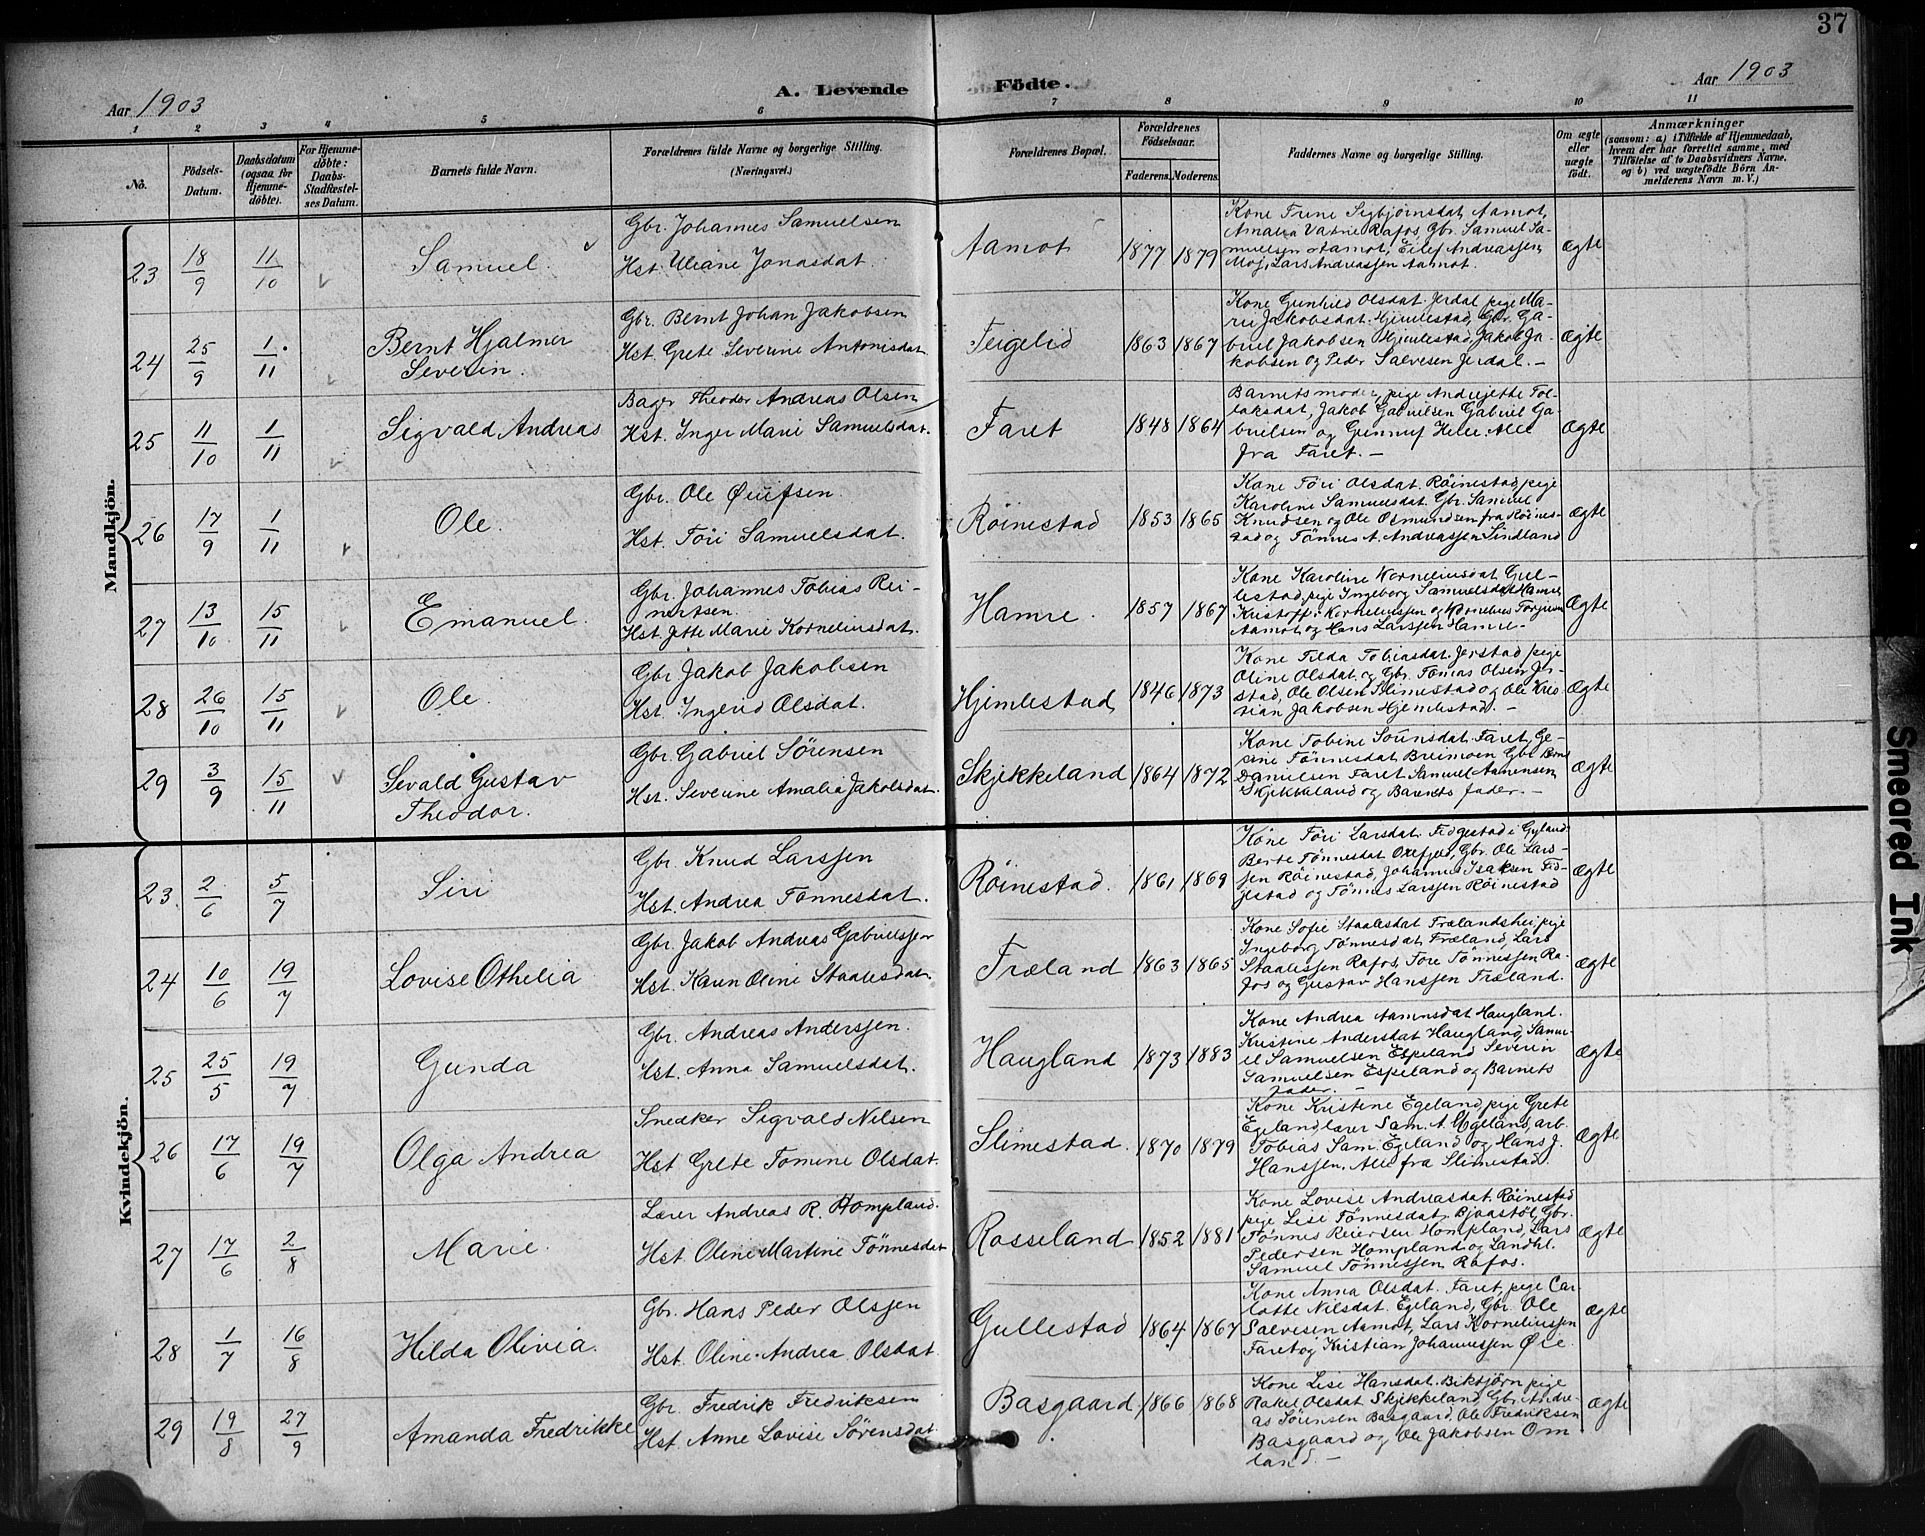 37
Aar 1903
A. Levende Födte.
Aar 1903
1 2 3 4 5 6 7 8 9 10 11
No.
Födsels-Datum.
Daabsdatum (ogsaa for Hjemmedöbte).
For Hjemmedöbte: Daabs-Stadfæstelses Datum.
Barnets fulde Navn.
Forældrenes fulde Navne og borgerlige Stilling. (Næringsvei.)
Forældrenes Bopæl.
Forældrenes Födselsaar.
Faderens. Moderens.
Faddernes Navne og borgerlige Stilling.
Om ægte eller uægte födt.
Anmærkninger
(saasom: a) i Tilfælde af Hjemmedaab, hvem der har forrettet samme, med Tilföielse af to Daabsvidners Navne, og b) ved uægtefödte Börn Anmelderens Navn m. V.)
Mandkjön.
23 18/9 11/10 Samuel.
Gbr. Johannes Samuelsen
Hst. Uliane Jonasdat.
Aamot 1877 1879
Kone Trine Sigbjørnsdat Aamot,
Amalia Valine Rafos Gbr. Samuel Sa-
muelsen Aamot, Eilef Andreassen
Moj, Lars Andreassen Aamot.
Ægte
24 25/9 1/11 Bernt Hjalmer
Severin.
Gbr. Bernt Johan Jakobsen
Hst. Grete Severine Antonisdat
Feigelid 1863 1867
Kone Gunhild Olsdat. Jerdal, pige Ma-
rie Jakobsdat. Hjimlestad, Gbr. Ga-
briel Jakobsen Hjimlestad, Jakob Ja-
kobsen og Peder Salvesen Jerdal. –
Ægte
25 11/10 1/11 Sigvald Andreas
Bager Theodor Andreas Olsen
Hst. Inger Marie Samuelsdat.
Faret 1848 1864
Barnets moder, pige Andrejette Tol-
laksdat, Jakob Gabrielsen Gabriel Ga-
brielsen og Gunnuf Helle. Alle
fra Faret. –
Ægte
26 17/9 1/11 Ole.
Gbr. Ole Øiufsen.
Hst. Töri Samuelsdat.
Röinestad 1853 1865
Kone Töri Olsdat. Röinestad, pige
Karoline Samuelsdat. Gbr. Samuel
Knudsen og Ole Osmundsen fra Röines-
tad og Tönnes A. Andreassen Lindland
Ægte
27 13/10 15/11 Emanuel.
Gbr. Johannes Tobias Rei-
nertsen.
Hst. Jette Marie Korneliusdat.
Hamre. 1857 1867
Kone Karoline Korneliusdat Gul-
lestad, pige Ingeborg Samuelsdat Hamre
Kristoffer Korneliussen og Kornelius
Aamot og Hans Larssen Hamre –
Ægte
28 26/10 15/11 Ole.
Gbr Jakob Jakobsen
Hst. Ingerid Olsdat.
Hjimlestad 1846 1873
Kone Tilda Tobiasdat. Jerstad pige
Oline Olsdat. og Gbr. Tomas Olsen Jer-
stad, Ole Olsen Slimestad og Ole Kris-
tian Jakobsen Hjemlestad. –
Ægte
29 3/9 15/11 Sevald Gustav
Theodor.
Gbr. Gabriel Sörensen
Hst. Severine Amalia Jakobsdat.
Skjekkeland 1864 1872
Kone Tobine Faret, Ge-
sine Tönnesdat Breimoen Gbr
Danielsen Faret Samuel
og Barnets fader. –
Ægte
Kvindekjön.
23. 2/6 5/7 Siri
Gbr. Knud Larssen
Hst. Andrea Tönnesdat.
Röinestad. 1861 1869
Kone Töri Larsdat. Fidgestad i Gyland
Berte Tönnesdat Oxefjeld, Gbr. Ole Lars-
sen Röinestad, Johannes Isaksen Fid-
jestad og Tönnes Larssen Röinestad
Ægte
24 10/6 19/7 Lovise Othelia
Gbr. Jakob Andreas Gabrielssen
Hst. Karen Oline Staalesdat
Træland 1863 1865
Kone Sofie Staalesdat Trælandshei, pige
Ingeborg Tönnesdat Træland, Lars
Staalessen Rafos, Tore Tönnessen Ra-
fos og Gustav Hanssen Træland.
Ægte
25 25/5 19/7 Gunda
Gbr. Andreas Anderssen.
Hst. Anna Samuelsdat.
Haugland 1873 1883
Kone Andrea Haugland.
Kristine Andersdat Haugland, Samu-
el Samuelsen Espeland Severin
Samuelsen Espeland og Barnets
fader. –
Ægte
26 17/6 19/7 Olga Andrea
Snedker Sigvald Nilsen
Hst Grete Tomine Olsdat.
Slimestad. 1870 1879
Kone Kristine Egeland, pige Grete
Egeland lærer Sam. A. Egeland, arb.
Tobias Sam. Egeland og Hans J.
Hanssen. Alle fra Slimestad.
Ægte
27 17/6 2/8 Marie.
Lærer Andreas R. Hompland.
Hst Oline Martine Tönnesdat
Rosseland 1852 1881
Kone Lovise Andreasdat. Röinestad
pige Lise Tönnesdat. Bjaastöl, Gbr.
Tönnes Reiersen Hompland, Lars
Pedersen Hompland og Landhl.
Samuel Tönnessen Rafos.
Ægte
28 1/7 16/8 Hilda Olivia.
Gbr. Hans Peder Olssen
Hst. Oline Andrea Olsdat.
Gullestad 1864 1867
Kone Anna Olsdat. Faret, pige Car-
lotte Nilsdat. Egeland, Gbr. Ole
Salvesen Aamot, Lars Korneliussen
Faret og Kristian Johannessen Øie.
Ægte
29 19/8 27/9 Amanda Fredrikke
Gbr. Fredrik Fredriksen
Hst. Anne Lovise Sörensdat
Basgaard. 1866 1868
Kone Lise Hansdat. Bikbjörn pige
Rakel Olsdat Skjekkeland, Gbr. Andre-
as Sörensen Basgaard, Ole Fredriksen
Basgaard og Ole Jakobsen Om
land. –
Ægte
Smeared Ink